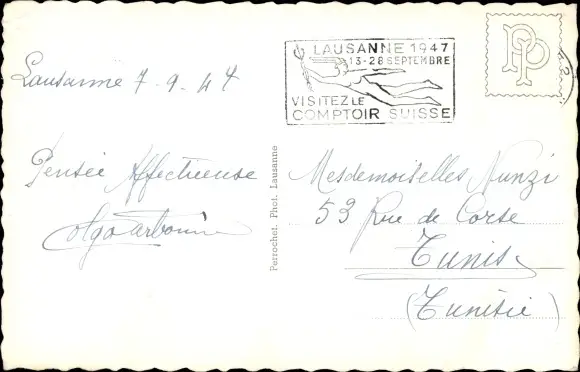 Lausanne 7-9-47
Pensée Affectueuse
LAUSANNE 1947
13-28 SEPTEMBRE
VISITEZ LE
COMPTOIR SUISSE
PP
Perrochet. Phot. Lausanne
Mesdemoiselles Nunzi
53 Rue de Corse
Tunis
(Tunisie)